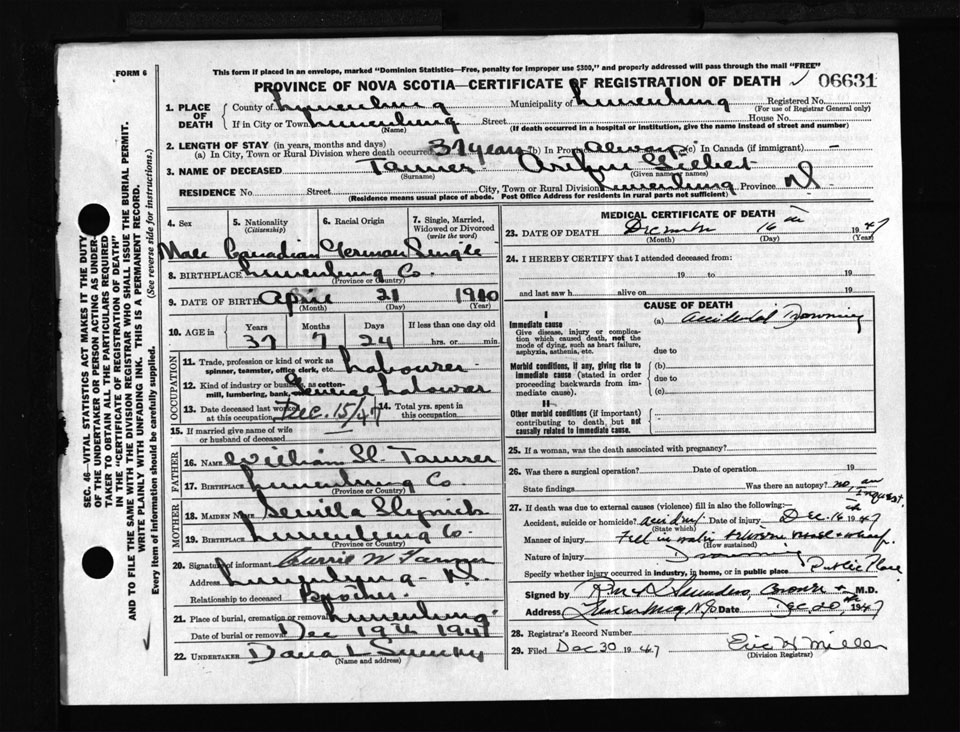 FORM 6
This form if placed in an envelope, marked "Dominion Statistics—Free, penalty for improper use $300," and properly addressed will pass through the mail "FREE"
PROVINCE OF NOVA SCOTIA—CERTIFICATE OF REGISTRATION OF DEATH 06631
1. PLACE OF DEATH
County of Lunenburg Municipality of Lunenburg Registered No.
(For use of Registrar General only)
If in City or Town Lunenburg Street House No.
(Name) (If death occurred in a hospital or institution, give the name instead of street and number)
2. LENGTH OF STAY (in years, months and days)
(a) In City, Town or Rural Division where death occurred 37 years (b) In Prov. Always (c) In Canada (if immigrant) —
3. NAME OF DECEASED Tanner Arthur
(Surname) (Given name or names)
RESIDENCE No. Street City, Town or Rural Division Lunenburg Province NS
(Residence means usual place of abode. Post Office Address for residents in rural parts not sufficient)
4. Sex 5. Nationality (Citizenship) 6. Racial Origin 7. Single, Married, Widowed or Divorced (write the word)
Male Canadian German Single
8. BIRTHPLACE Lunenburg Co.
(Province or Country)
9. DATE OF BIRTH April 21 1910
(Month) (Day) (Year)
10. AGE in Years Months Days If less than one day old
37 7 24 hrs. or min.
OCCUPATION
11. Trade, profession or kind of work as spinner, teamster, office clerk, etc. Labourer
12. Kind of industry or business, as cotton-mill, lumbering, bank, Labourer
13. Date deceased last worked at this occupation Dec. 15/47 14. Total yrs. spent in this occupation
15. If married give name of wife or husband of deceased
FATHER
16. NAME William Tanner
17. BIRTHPLACE Lunenburg Co.
(Province or Country)
MOTHER
18. MAIDEN NAME
19. BIRTHPLACE Lunenburg Co.
(Province or Country)
20. Signature of informant
Address Lunenburg - NS
Relationship to deceased Brother
21. Place of burial, cremation or removal Lunenburg
Date of burial or removal Dec 19th 1947
22. UNDERTAKER
(Name and address)
MEDICAL CERTIFICATE OF DEATH
23. DATE OF DEATH December 16 1947
(Month) (Day) (Year)
24. I HEREBY CERTIFY that I attended deceased from:
19 to 19
and last saw h alive on 19
CAUSE OF DEATH
I
Immediate cause
Give disease, injury or complication which caused death, not the mode of dying, such as heart failure, asphyxia, asthenia, etc.
(a) Accidental Drowning
due to
Morbid conditions, if any, giving rise to immediate cause (stated in order proceeding backwards from immediate cause).
(b)
due to
(c)
II
Other morbid conditions (if important) contributing to death, but not causally related to immediate cause.
25. If a woman, was the death associated with pregnancy?
26. Was there a surgical operation? Date of operation 19
State findings Was there an autopsy? no, an inquest
27. If death was due to external causes (violence) fill in also the following:—
Accident, suicide or homicide? accident Date of injury Dec. 16th 1947
(State which)
Manner of injury Fell in water between vessel & wharf
(How sustained)
Nature of injury Drowning
Specify whether injury occurred in industry, in home, or in public place Public Place
Signed by Saunders, Coroner M.D.
Address Lunenburg N.S. Date Dec. 20th 1947
28. Registrar's Record Number
29. Filed Dec 30 1947 Eric H Miller
(Division Registrar)
SEC. 46—VITAL STATISTICS ACT MAKES IT THE DUTY OF THE UNDERTAKER OR PERSON ACTING AS UNDERTAKER TO OBTAIN ALL THE PARTICULARS REQUIRED IN THE "CERTIFICATE OF REGISTRATION OF DEATH" AND TO FILE THE SAME WITH THE DIVISION REGISTRAR WHO SHALL ISSUE THE BURIAL PERMIT.
WRITE PLAINLY WITH UNFADING INK. THIS IS A PERMANENT RECORD.
Every item of Information should be carefully supplied. (See reverse side for instructions.)